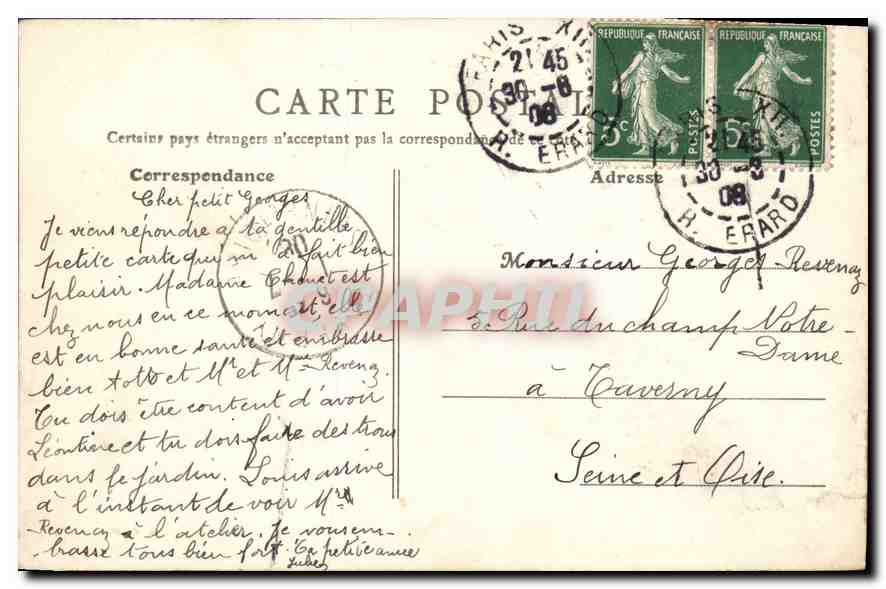 CARTE POSTALE
Certains pays étrangers n'acceptant pas la correspondance de ce côté
Correspondance
Adresse
Cher petit Georges
Je viens répondre a ta gentille
petite carte qui m'a fait bien
plaisir. Madame Chenet est
chez nous en ce moment, elle
est en bonne santé et embrasse
bien Totto et Mr et Mme Revenaz.
Tu dois être content d'avoir
Léontine et tu dois faire des trous
dans le jardin. Louis arrive
à l'instant de voir Mr
Revenaz à l'atelier. Je vous em-
brasse tous bien fort. Ta petite amie
Monsieur Georges Revenaz
5 Rue du champ Notre-
Dame
à Taverny
Seine et Oise.
REPUBLIQUE FRANÇAISE
5c
POSTES
REPUBLIQUE FRANÇAISE
5c
POSTES
PARIS XII
21 45
30 -8
08
R. ERARD
PARIS XII
21 45
30 -8
08
R. ERARD
30
CPAPHIL